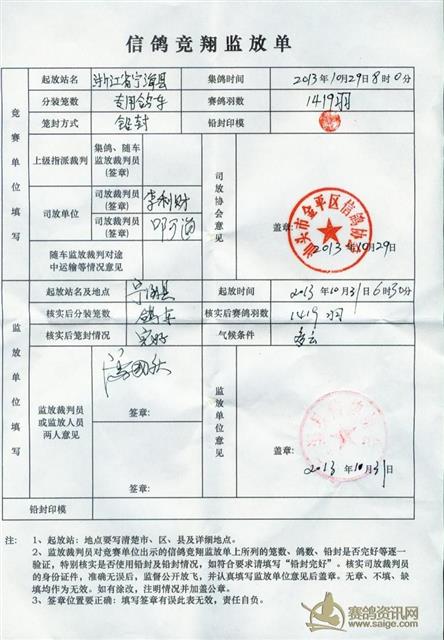 信鸽竞翔监放单
竞赛单位填写
起放站名 浙江省宁海县 集鸽时间 2013年10月29日8时0分
分装笼数 专用鸽车 赛鸽羽数 1419羽
笼封方式 铅封 铅封印模
上级指派裁判 集鸽、随车监放裁判员(签章)
司放单位 司放裁判员(签章) 李利财
司放裁判员(签章)
司放协会意见 盖章:
汕头市金平区信鸽协会
2013年10月29日
随车监放裁判对途中运输等情况意见
监放单位填写
起放站名及地点 宁海县 起放时间 2013年10月31日6时30分
核实后分装笼数 鸽车 核实后赛鸽羽数 1419羽
核实后笼封情况 完好 气候条件 多云
监放裁判员或监放人员两人意见
签章:
签章:
监放单位意见 盖章:
2013年10月31日
铅封印模
注: 1、起放站:地点要写清楚市、区、县及详细地点。
2、监放裁判员对竞赛单位出示的信鸽竞翔监放单上所列的笼数、鸽数、铅封是否完好等逐一
验证,特别核实是否使用铅封及铅封情况,如符合要求请填写“铅封完好”。核实司放裁判员
的身份证件,准确无误后,监督公开放飞,并认真填写监放单位意见后盖章。无章、不填、缺
填均作为无效。如有涂改,注明情况并加盖公章。
3、签章位置要正确:填写签章有误此表无效,责任自负。
赛鸽资讯网
www.saige.com